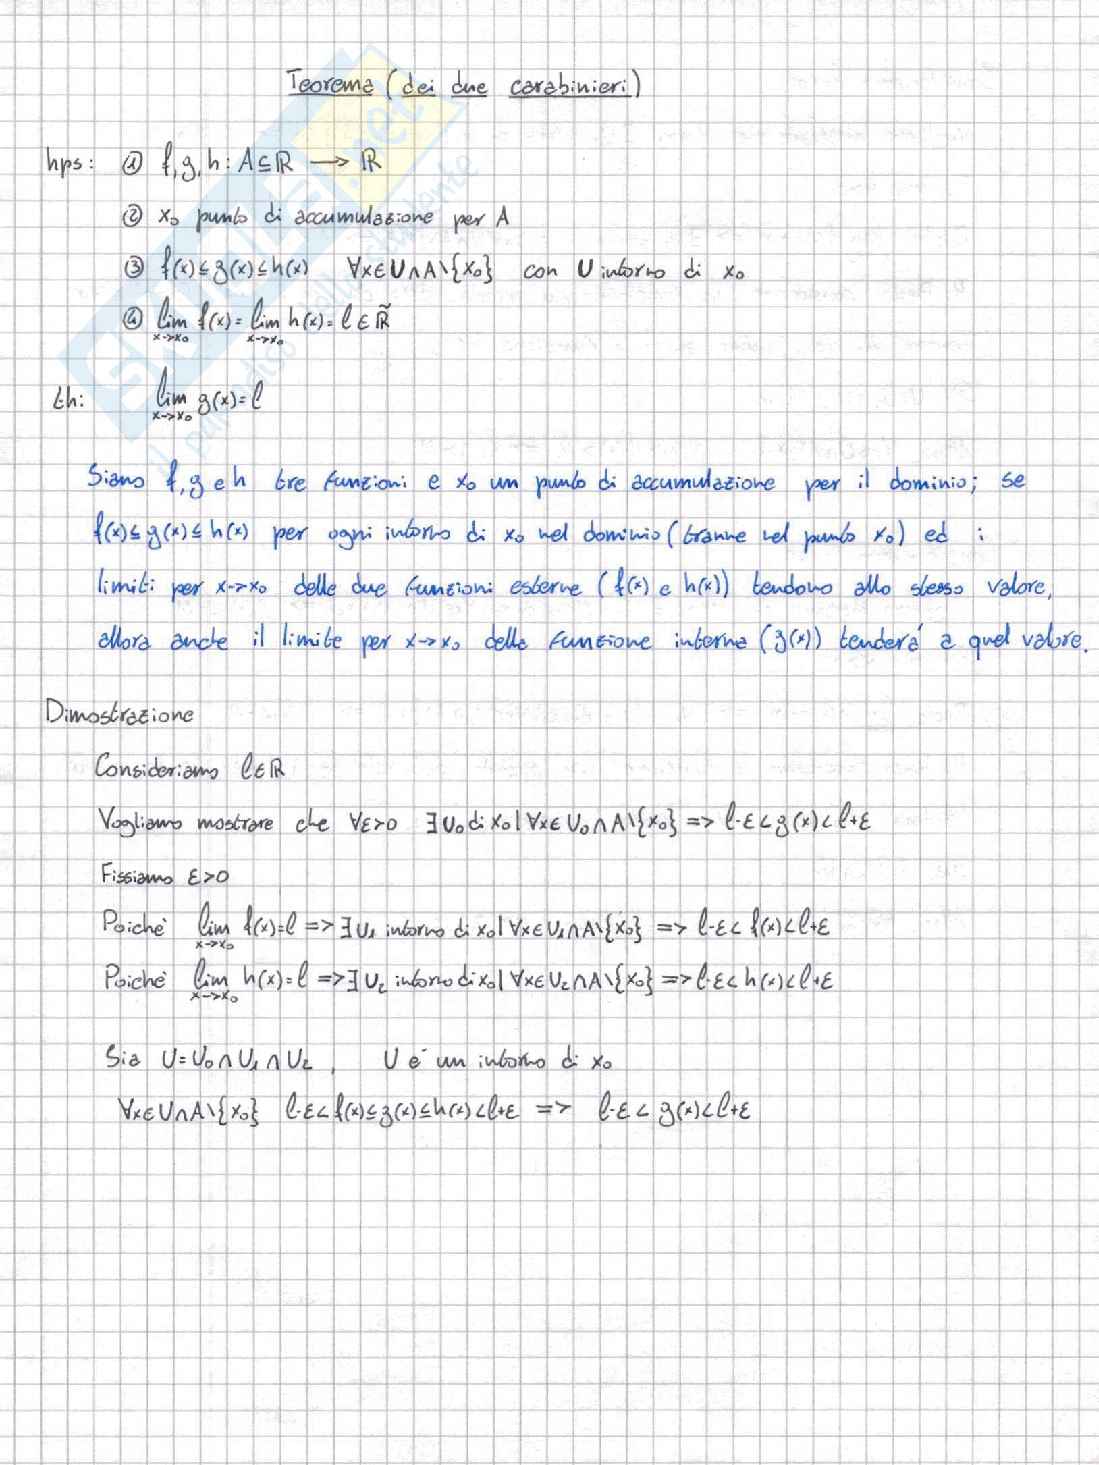 Teorema (dei due carabinieri)
hps: ① f,g,h: A⊆ℝ → ℝ
② x₀ punto di accumulazione per A
③ f(x)≤g(x)≤h(x) ∀x∈U∩A\{x₀} con U intorno di x₀
④ lim x->x₀ f(x)= lim x->x₀ h(x)= l ∈ ℝ̃
th: lim x->x₀ g(x)= l
Siano f,g e h tre funzioni e x₀ un punto di accumulazione per il dominio; se
f(x)≤g(x)≤h(x) per ogni intorno di x₀ nel dominio (tranne nel punto x₀) ed i
limiti per x->x₀ delle due funzioni esterne (f(x) e h(x)) tendono allo stesso valore,
allora anche il limite per x->x₀ della funzione interna (g(x)) tenderà a quel valore.
Dimostrazione
Consideriamo l∈ℝ
Vogliamo mostrare che ∀ε>0 ∃U₀ di x₀ | ∀x∈U₀∩A\{x₀} => l-ε<g(x)<l+ε
Fissiamo ε>0
Poichè lim x->x₀ f(x)=l => ∃U₁ intorno di x₀ | ∀x∈U₁∩A\{x₀} => l-ε<f(x)<l+ε
Poichè lim x->x₀ h(x)=l => ∃U₂ intorno di x₀ | ∀x∈U₂∩A\{x₀} => l-ε<h(x)<l+ε
Sia U=U₀∩U₁∩U₂, U è un intorno di x₀
∀x∈U∩A\{x₀} l-ε<f(x)≤g(x)≤h(x)<l+ε => l-ε<g(x)<l+ε